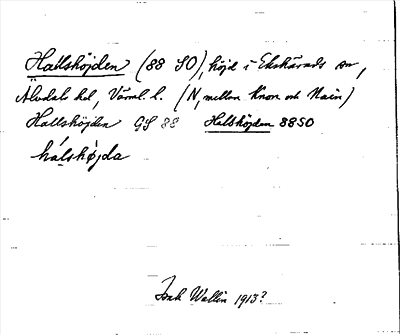 Hallshöjden (88 SO), höjd i Ekshärads sn,
Älvdals hd, Värml. l. (N, mellan Knon och Nain)
Hallshöjden GS 88 Halshöjden 88SO
hálshòjda
Isak Wallin 1913?